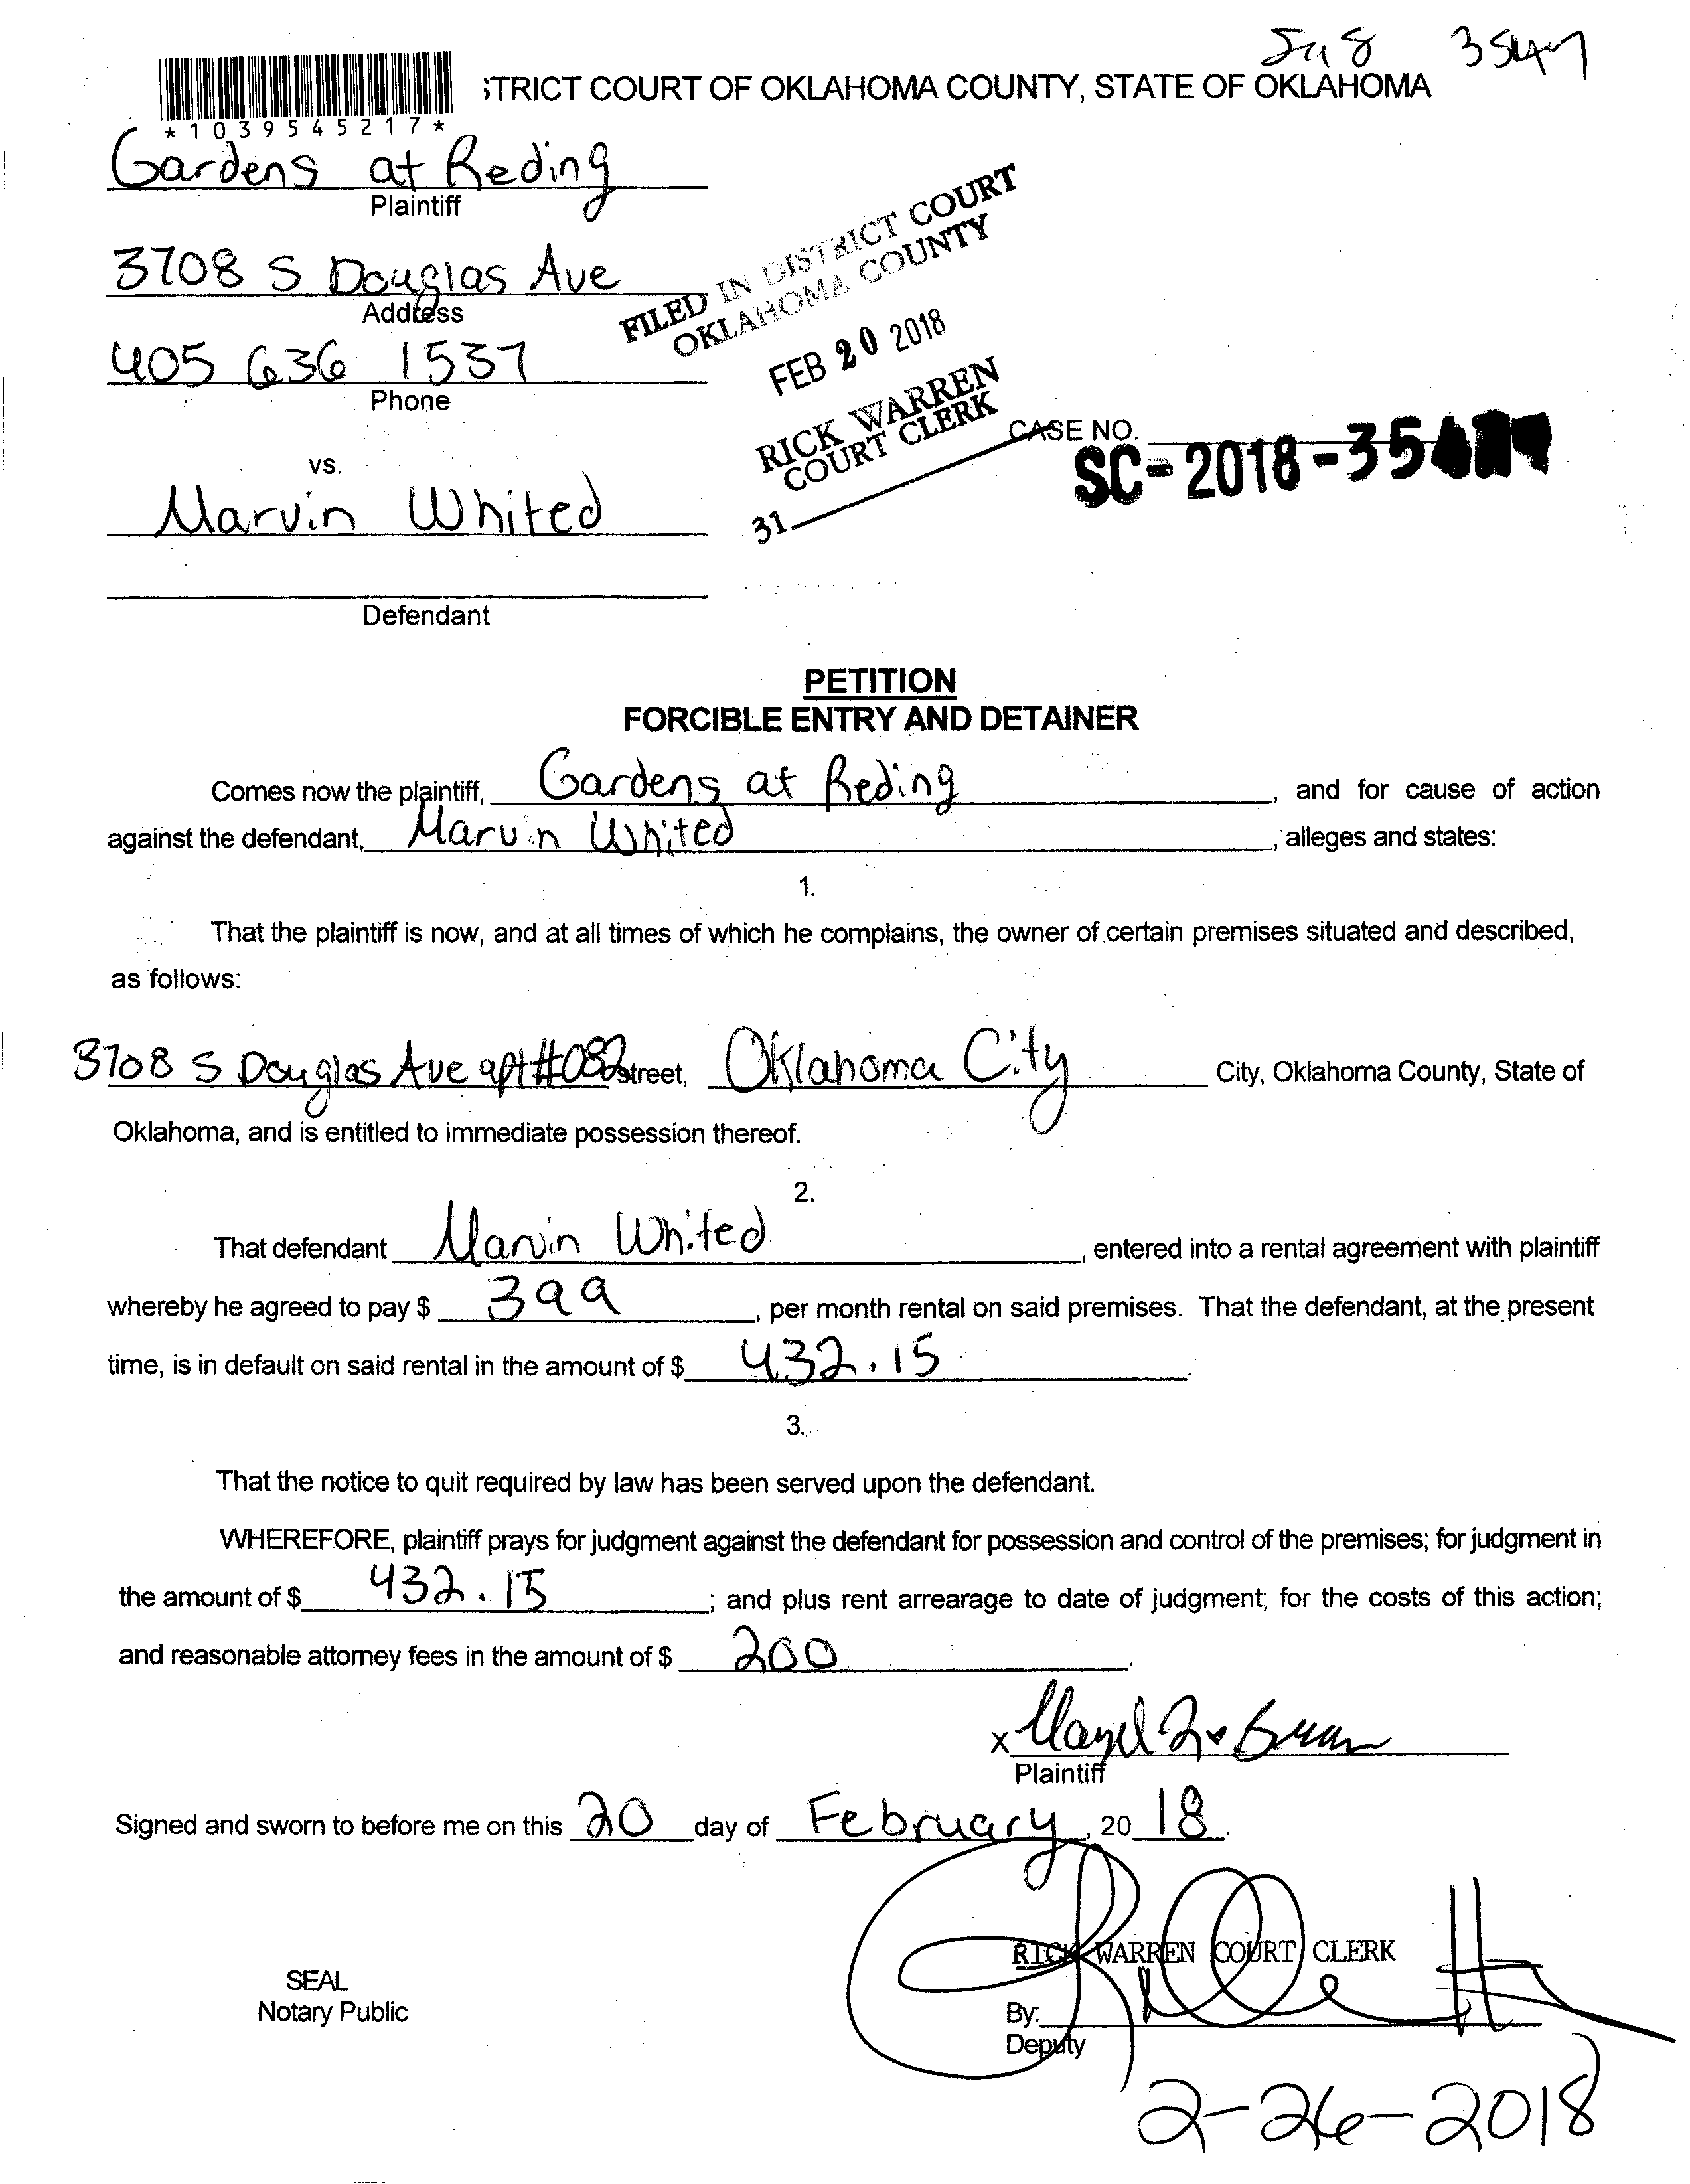 3547
;TRICT COURT OF OKLAHOMA COUNTY, STATE OF OKLAHOMA
*1039545217*
Gardens at Reding
Plaintiff
3708 S Douglas Ave
Address
405 636 1537
Phone
FILED IN DISTRICT COURT
OKLAHOMA COUNTY
FEB 20 2018
RICK WARREN
COURT CLERK
31
CASE NO.
SC-2018-354
vs.
Marvin Whited
Defendant
PETITION
FORCIBLE ENTRY AND DETAINER
Comes now the plaintiff, Gardens at Reding, and for cause of action
against the defendant, Marvin Whited, alleges and states:
1.
That the plaintiff is now, and at all times of which he complains, the owner of certain premises situated and described,
as follows:
3708 S Douglas Ave apt #082 street, Oklahoma City City, Oklahoma County, State of
Oklahoma, and is entitled to immediate possession thereof.
2.
That defendant Marvin Whited, entered into a rental agreement with plaintiff
whereby he agreed to pay $ 399, per month rental on said premises. That the defendant, at the present
time, is in default on said rental in the amount of $ 432.15.
3.
That the notice to quit required by law has been served upon the defendant.
WHEREFORE, plaintiff prays for judgment against the defendant for possession and control of the premises; for judgment in
the amount of $ 432.15; and plus rent arrearage to date of judgment; for the costs of this action;
and reasonable attorney fees in the amount of $ 200.
x
Plaintiff
Signed and sworn to before me on this 20 day of February, 20 18.
RICK WARREN COURT CLERK
SEAL
Notary Public
By:
Deputy
2-26-2018